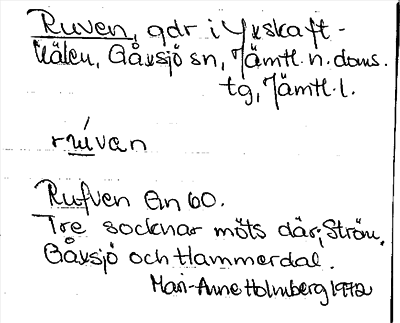 Ruven, gdr i Yxskaft-
kälen, Gåxsjö sn, Jämtl. n. doms.
tg, Jämtl. l.
Rufven En 60.
Tre socknar möts där; Ström,
Gåxsjö och Hammerdal.
Mari-Anne Holmberg 1972